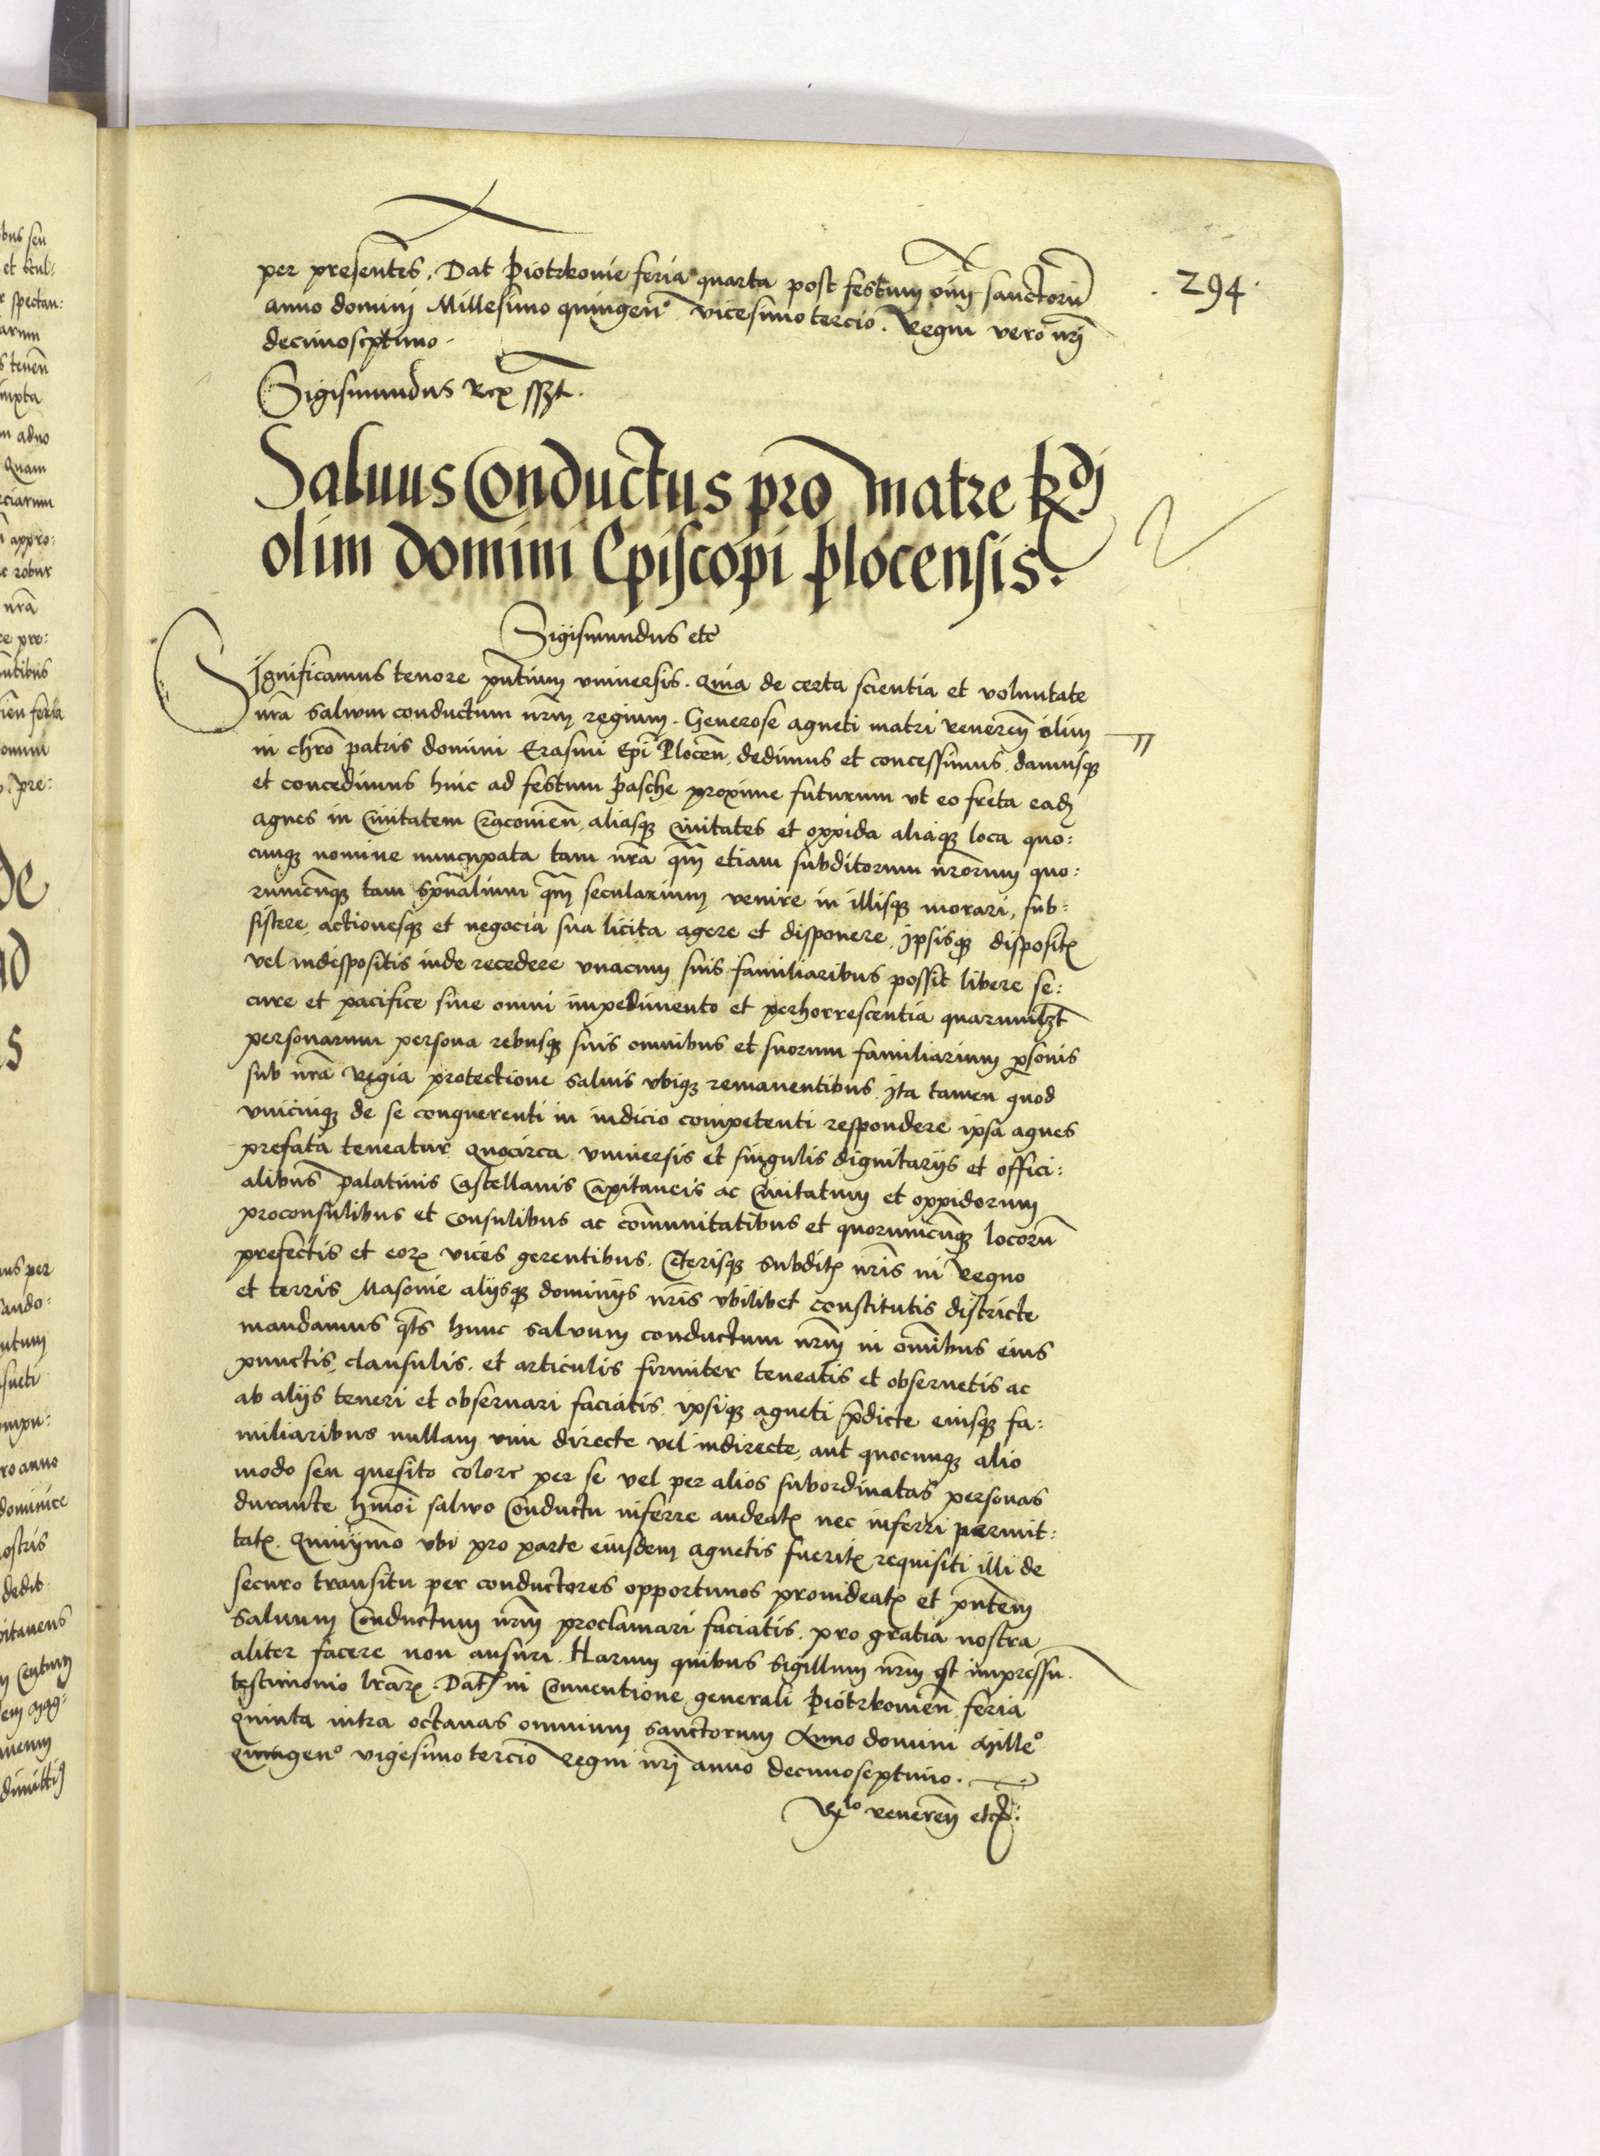 per presentes. Dat Piotrkovie feria quarta post festum oim sanctoru
294.
anno domini Millesimo quingen° vicesimo tercio. Regni vero nri
decimoseptimo.
Sigismundus Rex sszt.
Saluus Conductus pro matre Rdi
olim domini Episcopi plocensis.
Sigismundus etc
Significamus tenore pntium vniuersis. Quia de certa scientia et voluntate
nra saluum conductum nrm regium. Generose agneti matri veneren olim
in chro patris domini Erasmi Epi Plocen, dedimus et concessimus, damusq
et concedimus hinc ad festum pasche proxime futurum vt eo freta eadem
agnes in Ciuitatem Cracouien, aliasq Ciuitates et oppida aliaq loca quo:
cunq nomine nuncupata tam nra qm etiam subditorum nrorum quo:
rumcunq tam spualium qm secularium venire in illisq morari, sub:
sistere, actionesq et negocia sua licita agere et disponere, ipsisq dispositis
vel indispositis inde recedere vnacum suis familiaribus possit libere se:
cure et pacifice sine omni impedimento et perhorrescentia quarumlzt
personarum persona rebusq suis omnibus et suorum familiarium psonis
sub nra Regia protectione saluis vbiq remanentibus. Ita tamen quod
vnicuiq de se conquerenti in iudicio competenti respondere ipsa agnes
prefata teneatur. Quocirca vniuersis et singulis dignitarijs et offici:
alibus Palatinis Castellanis Capitaneis ac Ciuitatum et oppidorum
proconsulibus et Consulibus ac comunitatibus et quorumcunq locoru
prefectis et eor vices gerentibus. Ceterisq subditis nris in Regno
et terris Masouie alijsq dominijs nris vbilibet constitutis districte
mandamus qts hunc saluum conductum nrm in omibus eius
punctis, clausulis. et articulis firmiter teneatis et obseruetis ac
ab alijs teneri et obseruari faciatis. ipsiq agneti pdicte eiusq fa:
miliaribus nullam vim directe vel indirecte, aut quocunq alio
modo seu quesito colore per se vel per alios subordinatas personas
durante hmoi saluo Conductu inferre audeatis nec inferri permit:
tatis. Quinymo vbi pro parte eiusdem agnetis fueritis requisiti illi de
securo transitu per conductores opportunos prouideatis et pntem
saluum Conductum nrm proclamari faciatis. pro gratia nostra
aliter facere non ausuri. Harum quibus sigillum nrm est impressu.
testimonio lrar. Dat in Conuentione generali Piotrkouien feria
quinta intra octauas omnium sanctorum Anno domini Mille°
quingen° vigesimo tercio Regni nri anno decimoseptimo.
Rlo veneren etc